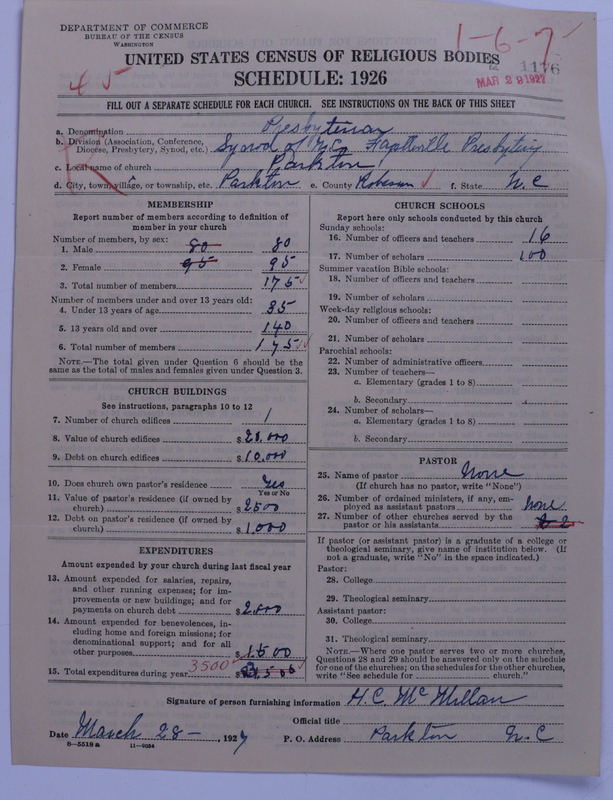 DEPARTMENT OF COMMERCE
BUREAU OF THE CENSUS
WASHINGTON
1-6-7
1176
MAR 29 1927
45
UNITED STATES CENSUS OF RELIGIOUS BODIES
SCHEDULE: 1926
FILL OUT A SEPARATE SCHEDULE FOR EACH CHURCH. SEE INSTRUCTIONS ON THE BACK OF THIS SHEET
a. Denomination Presbyterian
b. Division (Association, Conference, Diocese, Presbytery, Synod, etc.) Synod of N.C. Fayetteville Presbytery
c. Local name of church Parkton
d. City, town, village, or township, etc. Parkton e. County Robeson f. State N.C
MEMBERSHIP
Report number of members according to definition of member in your church
Number of members, by sex:
1. Male 80 80
2. Female 95 95
3. Total number of members 175
Number of members under and over 13 years old:
4. Under 13 years of age 35
5. 13 years old and over 140
6. Total number of members 175
NOTE.—The total given under Question 6 should be the same as the total of males and females given under Question 3.
CHURCH BUILDINGS
See instructions, paragraphs 10 to 12
7. Number of church edifices 1
8. Value of church edifices $
9. Debt on church edifices $10,000
10. Does church own pastor's residence Yes
Yes or No
11. Value of pastor's residence (if owned by church) $2500
12. Debt on pastor's residence (if owned by church) $1,000
EXPENDITURES
Amount expended by your church during last fiscal year
13. Amount expended for salaries, repairs, and other running expenses; for improvements or new buildings; and for payments on church debt $2,000
14. Amount expended for benevolences, including home and foreign missions; for denominational support; and for all other purposes $1500
15. Total expenditures during year 3500 $
CHURCH SCHOOLS
Report here only schools conducted by this church
Sunday schools:
16. Number of officers and teachers 16
17. Number of scholars 100
Summer vacation Bible schools:
18. Number of officers and teachers
19. Number of scholars
Week-day religious schools:
20. Number of officers and teachers
21. Number of scholars
Parochial schools:
22. Number of administrative officers
23. Number of teachers—
a. Elementary (grades 1 to 8)
b. Secondary
24. Number of scholars—
a. Elementary (grades 1 to 8)
b. Secondary
PASTOR
25. Name of pastor None
(If church has no pastor, write "None")
26. Number of ordained ministers, if any, employed as assistant pastors none
27. Number of other churches served by the pastor or his assistants
If pastor (or assistant pastor) is a graduate of a college or theological seminary, give name of institution below. (If not a graduate, write "No" in the space indicated.)
Pastor:
28. College
29. Theological seminary
Assistant pastor:
30. College
31. Theological seminary
NOTE.—Where one pastor serves two or more churches, Questions 28 and 29 should be answered only on the schedule for one of the churches; on the schedules for the other churches, write "See schedule for church."
Signature of person furnishing information H.C. McMillan
Official title
Date March 28 - , 1927 P. O. Address Parkton N.C
8—5518a 11—9034